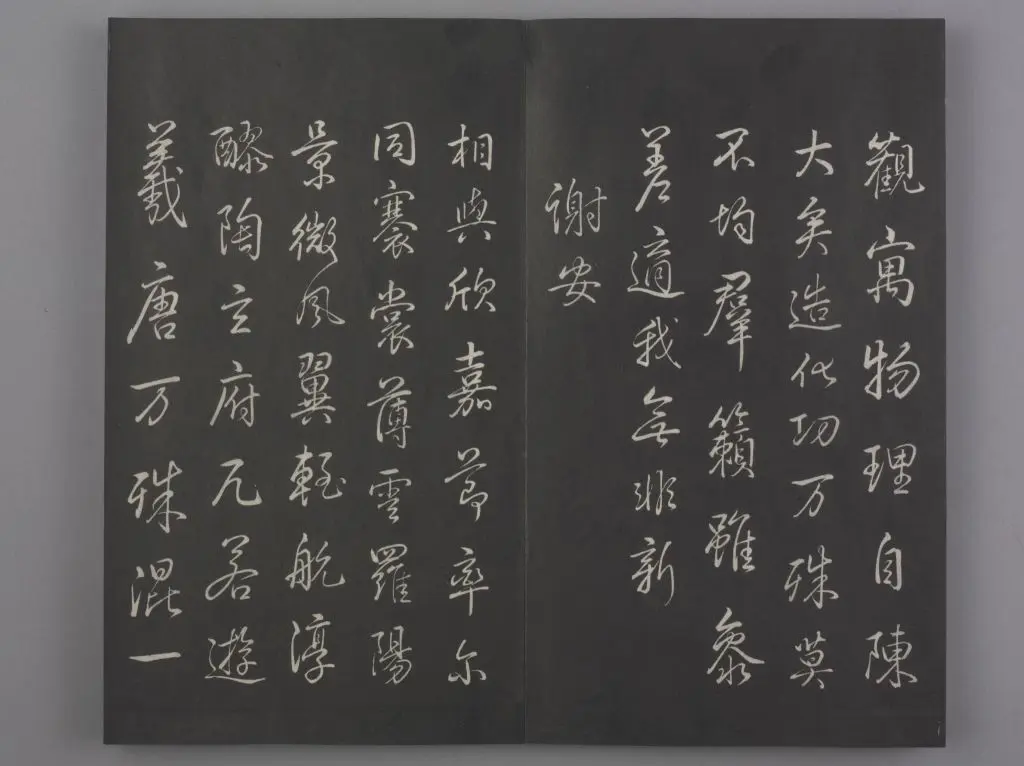 觀寓物理自陳
大矣造化功万殊莫
不均羣籟雖參
差適我無非新
謝安
相與欣嘉節率尔
同褰裳薄雲羅陽
景微風翼輕航淳
醪陶玄府兀若遊
羲唐万殊混一